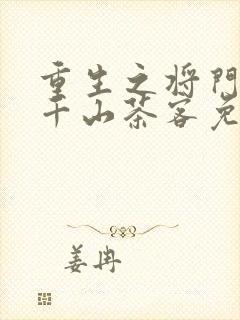 重生之将门
千山茶客免
姜冉